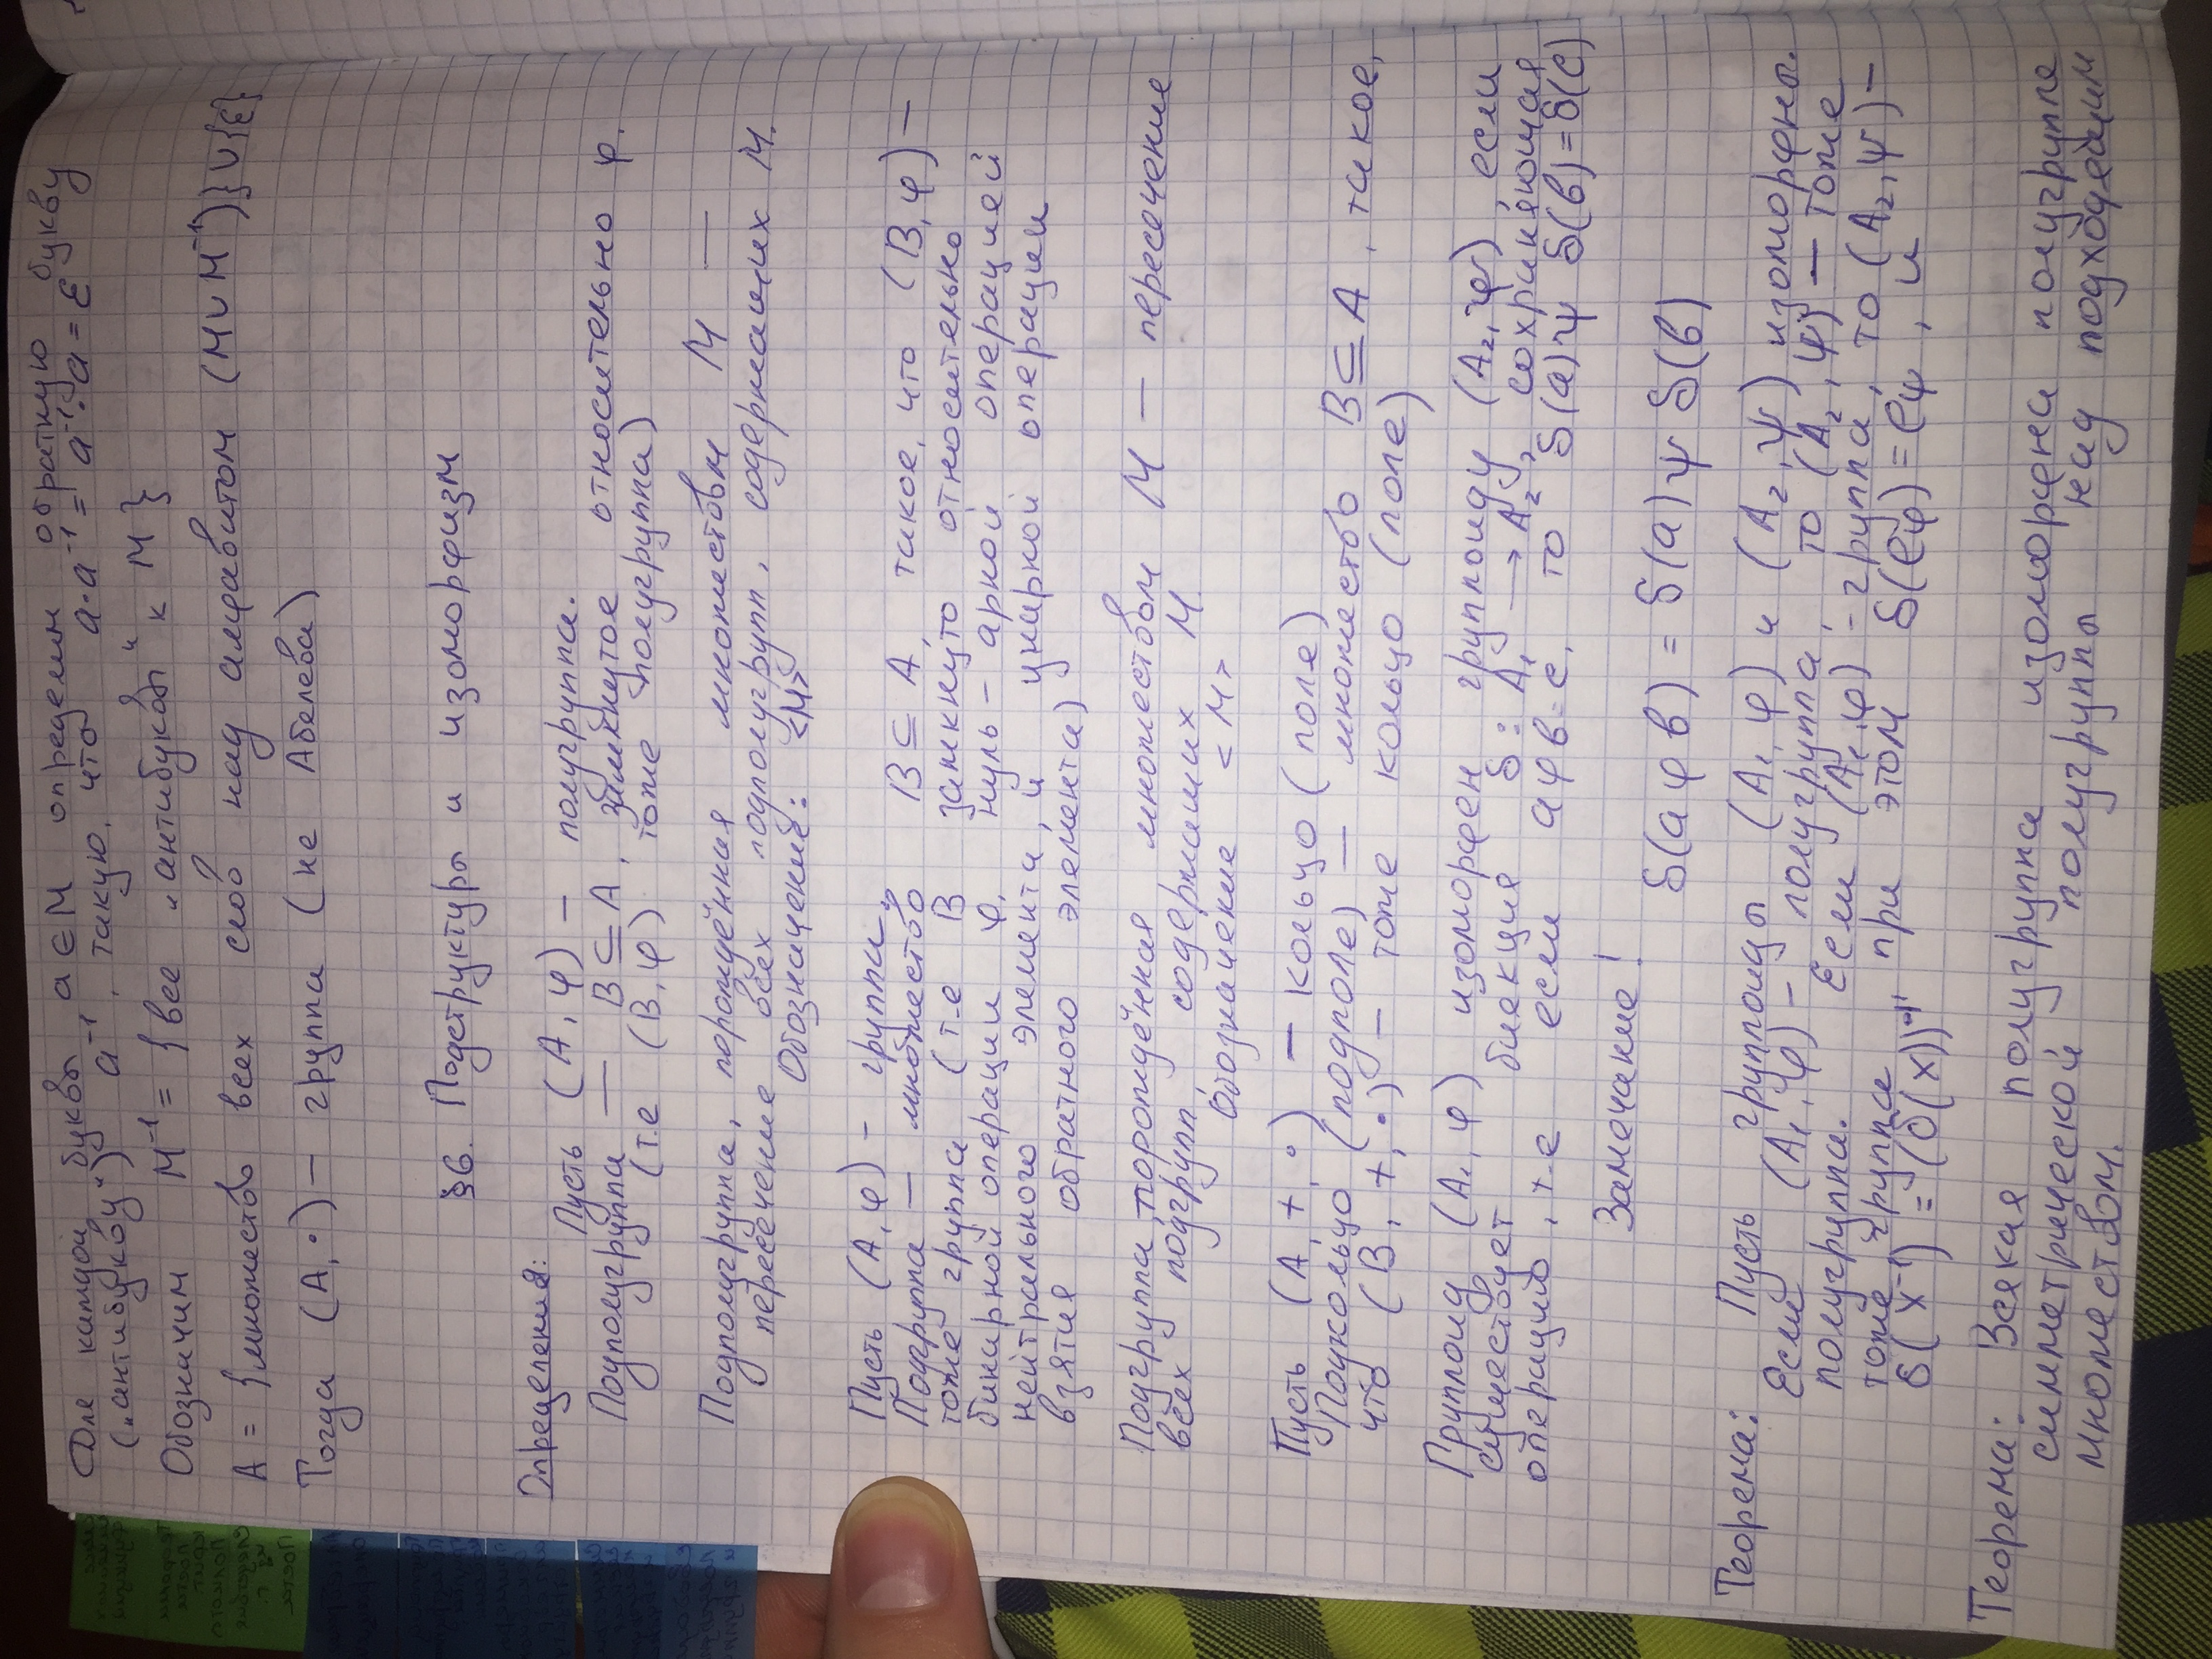 Для каждой буквы a∈M определим обратную букву
(„антибукву") a⁻¹, такую, что a·a⁻¹ = a⁻¹·a = ε
Обозначим M⁻¹ = {все „антибуквы" к M}
A = {множество всех слов над алфавитом (M∪M⁻¹)}∪{ε}
Тогда (A,·) — группа (не Абелева)
§6. Подструктуры и изоморфизм
Определения:
Пусть (A, φ) — полугруппа.
Подполугруппа — B⊆A, замкнутое относительно φ.
(т.е (B,φ) тоже полугруппа)
Подполугруппа, порождённая множеством M —
пересечение всех подполугрупп, содержащих M.
Обозначение: <M>
Пусть (A,φ) - группа.
Подгруппа — множество B⊆A, такое, что (B,φ) —
тоже группа (т-е B замкнуто относительно
бинарной операции φ, нуль-арной операцией
нейтрального элемента, и унарной операции
взятия обратного элемента)
Подгруппа, порождённая множеством M — пересечение
всех подгрупп, содержащих M.
Обозначение <M>
Пусть (A, +, ·) — кольцо (поле)
Подкольцо (подполе) — множество B⊆A, такое,
что (B, +, ·) — тоже кольцо (поле)
Группоид (A₁, φ) изоморфен группоиду (A₂, ψ), если
существует биекция δ: A₁ → A₂, сохраняющая
операцию, т.е если aφb=c, то δ(a)ψ δ(b)=δ(c)
Замечание!
δ(aφb) = δ(a)ψ δ(b)
Теорема: Пусть группоиды (A₁,φ) и (A₂,ψ) изоморфны.
Если (A₁,φ) - полугруппа, то (A₂,ψ) — тоже
полугруппа. Если (A₁,φ) - группа, то (A₂,ψ) —
тоже группа, при этом δ(eφ)=eψ, и
δ(x⁻¹) = (δ(x))⁻¹
Теорема: Всякая полугруппа изоморфна полугруппе
симметрической полугруппы над подходящим
множеством.